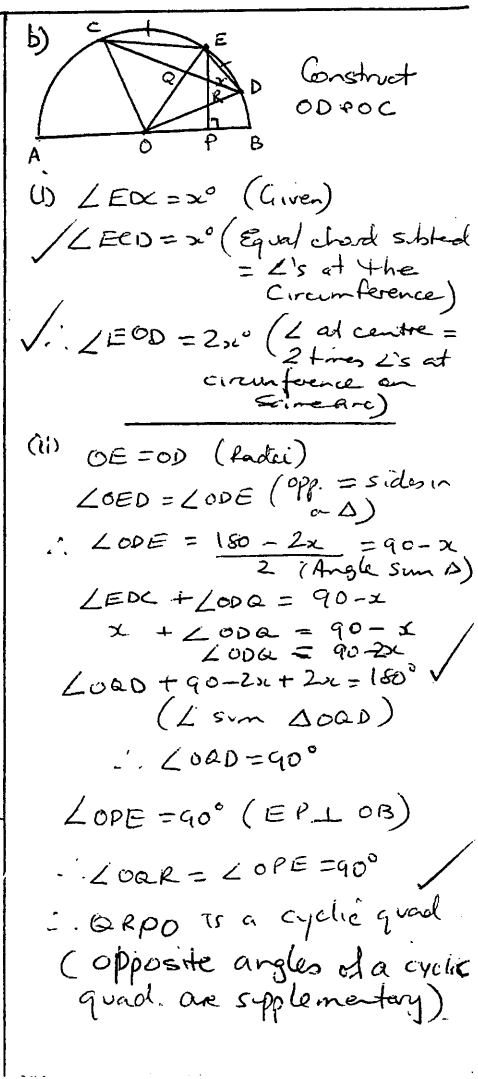 b)
C
E
x
Q
R
D
Construct
OD & OC
A
O
P
B
(i) ∠EDC = x° (Given)
∠ECD = x° (Equal chord subtend
= ∠'s at the
Circumference)
∴ ∠EOD = 2x° (∠ at centre =
2 times ∠'s at
circumference on
same arc)
(ii) OE = OD (Radii)
∠OED = ∠ODE (opp. = sides in
a Δ)
∴ ∠ODE = 180 - 2x / 2 = 90 - x
(Angle sum Δ)
∠EDC + ∠ODQ = 90 - x
x + ∠ODQ = 90 - x
∠ODQ = 90 - 2x
∠OQD + 90 - 2x + 2x = 180°
(∠ sum ΔOQD)
∴ ∠OQD = 90°
∠OPE = 90° (EP ⊥ OB)
∴ ∠OQR = ∠OPE = 90°
∴ QRPO is a cyclic quad
(opposite angles of a cyclic
quad. are supplementary)